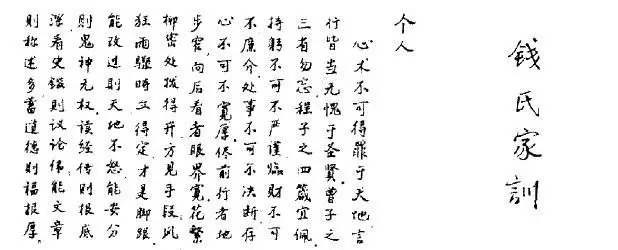 錢氏家訓
个人
心术不可得罪于天地言
行皆当无愧于圣賢曾子之
三省勿忘程子之四箴宜佩
持躬不可不严谨临财不可
不廉介处事不可不决断存
心不可不寬厚尽前行者地
步窄向后看者眼界寬花繁
柳密处拨得开方見手段风
狂雨驟時立得定才是脚跟
能改过則天地不怒能安分
則鬼神无权读经传則根底
深看史鉴則议论伟能文章
則称述多蓄道德則福报厚。